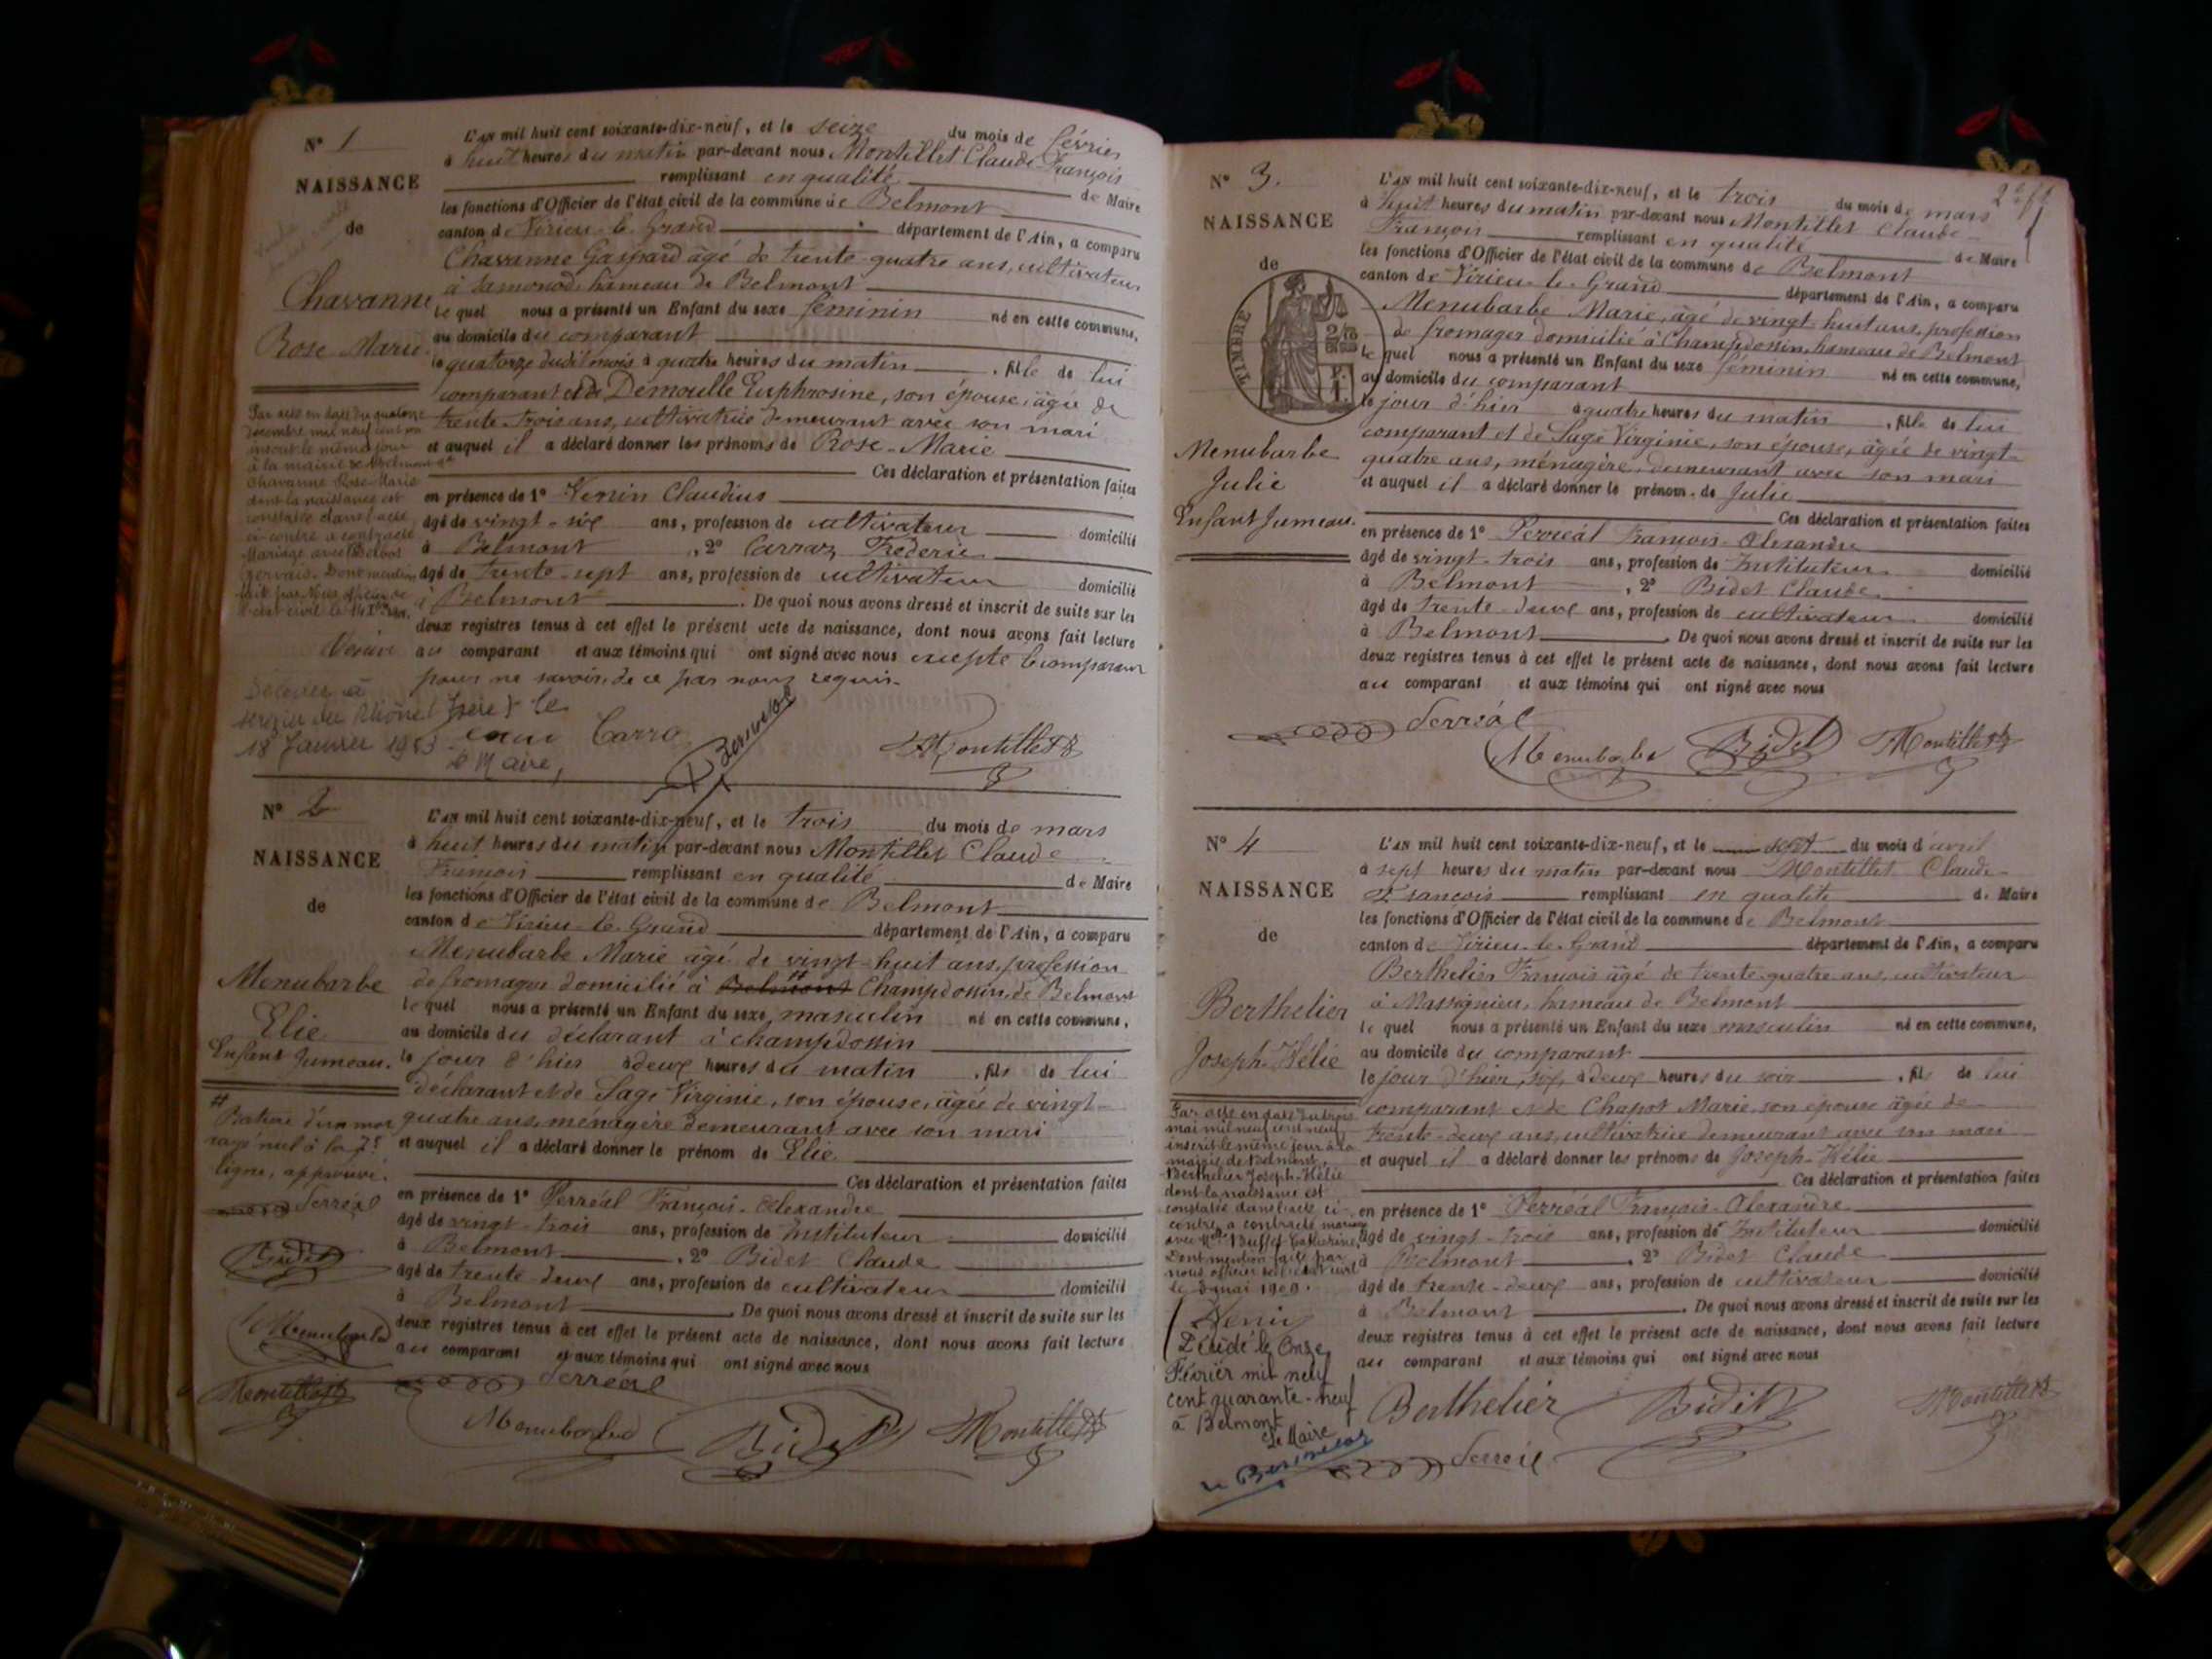 N° 1
NAISSANCE
de
Chavanne
Rose Marie
L'an mil huit cent soixante-dix-neuf, et le seize du mois de février
à huit heures du matin par-devant nous Montillet Claude François
remplissant en qualité de Maire
les fonctions d'Officier de l'état civil de la commune de Belmont
canton de Virieu-le-Grand département de l'Ain, a comparu
Chavanne Gaspard âgé de trente-quatre ans, cultivateur
à hameau de Belmont
lequel nous a présenté un Enfant du sexe féminin né en cette commune,
au domicile du comparant
le quatorze dudit mois à quatre heures du matin, fille de lui
comparant et de Demoulle Euphrosine, son épouse, âgée de
trente-trois ans, cultivatrice demeurant avec son mari
et auquel il a déclaré donner les prénoms de Rose-Marie
Ces déclaration et présentation faites
en présence de 1° Claudius
âgé de vingt-six ans, profession de cultivateur domicilié
à Belmont, 2° Carraz Frédéric
âgé de trente-sept ans, profession de cultivateur domicilié
à Belmont. De quoi nous avons dressé et inscrit de suite sur les
deux registres tenus à cet effet le présent acte de naissance, dont nous avons fait lecture
au comparant et aux témoins qui ont signé avec nous excepté le comparant
pour ne savoir, de ce par nous requis.
Par acte en date du quatorze
décembre mil neuf cent
inscrit le même jour
à la mairie de Belmont
Chavanne Rose-Marie
dont la naissance est
constatée dans l'acte
ci-contre a contracté
Mariage avec
Gervais. Dont mention
faite par Nous officier de
l'état civil le 14
Décédée à
(Isère) le
18 Janvier 1953
le Maire,
Carra
Montillet
N° 2
NAISSANCE
de
Menubarbe
Elie
Enfant Jumeau.
L'an mil huit cent soixante-dix-neuf, et le trois du mois de mars
à huit heures du matin par-devant nous Montillet Claude
François remplissant en qualité de Maire
les fonctions d'Officier de l'état civil de la commune de Belmont
canton de Virieu-le-Grand département de l'Ain, a comparu
Menubarbe Marie âgé de vingt-huit ans, profession
de fromager domicilié à Belmont # Champdossin, de Belmont
lequel nous a présenté un Enfant du sexe masculin né en cette commune,
au domicile du déclarant à Champdossin
le jour d'hier à deux heures du matin, fils de lui
déclarant et de Sage Virginie, son épouse, âgée de vingt-
quatre ans, ménagère demeurant avec son mari
et auquel il a déclaré donner le prénom de Elie
Ces déclaration et présentation faites
en présence de 1° Perréal François-Alexandre
âgé de vingt-trois ans, profession de Instituteur domicilié
à Belmont, 2° Bidet Claude
âgé de trente-deux ans, profession de cultivateur domicilié
à Belmont. De quoi nous avons dressé et inscrit de suite sur les
deux registres tenus à cet effet le présent acte de naissance, dont nous avons fait lecture
au comparant et aux témoins qui ont signé avec nous
# Rature d'un mot
rayé nul à la 7e
ligne, approuvé.
Perréal
Bidet
Menubarbe
Montillet
Perréal
Menubarbe
Bidet
Montillet
2e ft
N° 3.
NAISSANCE
de
TIMBRE
Menubarbe
Julie
Enfant Jumeau.
L'an mil huit cent soixante-dix-neuf, et le trois du mois de mars
à huit heures du matin par-devant nous Montillet Claude-
François remplissant en qualité de Maire
les fonctions d'Officier de l'état civil de la commune de Belmont
canton de Virieu-le-Grand département de l'Ain, a comparu
Menubarbe Marie, âgé de vingt-huit ans, profession
de fromager domicilié à Champdossin, hameau de Belmont
lequel nous a présenté un Enfant du sexe féminin né en cette commune,
au domicile du comparant
le jour d'hier à quatre heures du matin, fille de lui
comparant et de Sage Virginie, son épouse, âgée de vingt-
quatre ans, ménagère, demeurant avec son mari
et auquel il a déclaré donner le prénom de Julie
Ces déclaration et présentation faites
en présence de 1° Perréal François-Alexandre
âgé de vingt-trois ans, profession de Instituteur domicilié
à Belmont, 2° Bidet Claude
âgé de trente-deux ans, profession de cultivateur domicilié
à Belmont. De quoi nous avons dressé et inscrit de suite sur les
deux registres tenus à cet effet le présent acte de naissance, dont nous avons fait lecture
au comparant et aux témoins qui ont signé avec nous
Perréal
Menubarbe
Bidet
Montillet
N° 4
NAISSANCE
de
Berthelier
Joseph-Hélie
L'an mil huit cent soixante-dix-neuf, et le sept du mois d'avril
à sept heures du matin par-devant nous Montillet Claude-
François remplissant en qualité de Maire
les fonctions d'Officier de l'état civil de la commune de Belmont
canton de Virieu-le-Grand département de l'Ain, a comparu
Berthelier François âgé de trente-quatre ans, cultivateur
à Massignieu, hameau de Belmont
lequel nous a présenté un Enfant du sexe masculin né en cette commune,
au domicile du comparant
le jour d'hier, six, à deux heures du soir, fils de lui
comparant et de Chapot Marie son épouse âgée de
trente-deux ans, cultivatrice demeurant avec son mari
et auquel il a déclaré donner les prénoms de Joseph-Hélie
Ces déclaration et présentation faites
en présence de 1° Perréal François-Alexandre
âgé de vingt-trois ans, profession de Instituteur domicilié
à Belmont, 2° Bidet Claude
âgé de trente-deux ans, profession de cultivateur domicilié
à Belmont. De quoi nous avons dressé et inscrit de suite sur les
deux registres tenus à cet effet le présent acte de naissance, dont nous avons fait lecture
au comparant et aux témoins qui ont signé avec nous
Par acte en date du trois
mai mil neuf cent neuf
inscrit le même jour à la
mairie de Belmont,
Berthelier Joseph-Hélie
dont la naissance est
constatée dans l'acte ci-
contre, a contracté mariage
avec Buffet Catherine,
Dont mention faite par
nous officier de l'état civil
le 3 mai 1909.
Décédé le Onze
Février mil neuf
cent quarante-neuf
à Belmont
Le Maire
Berthelier
Bidet
Montillet
Perréal